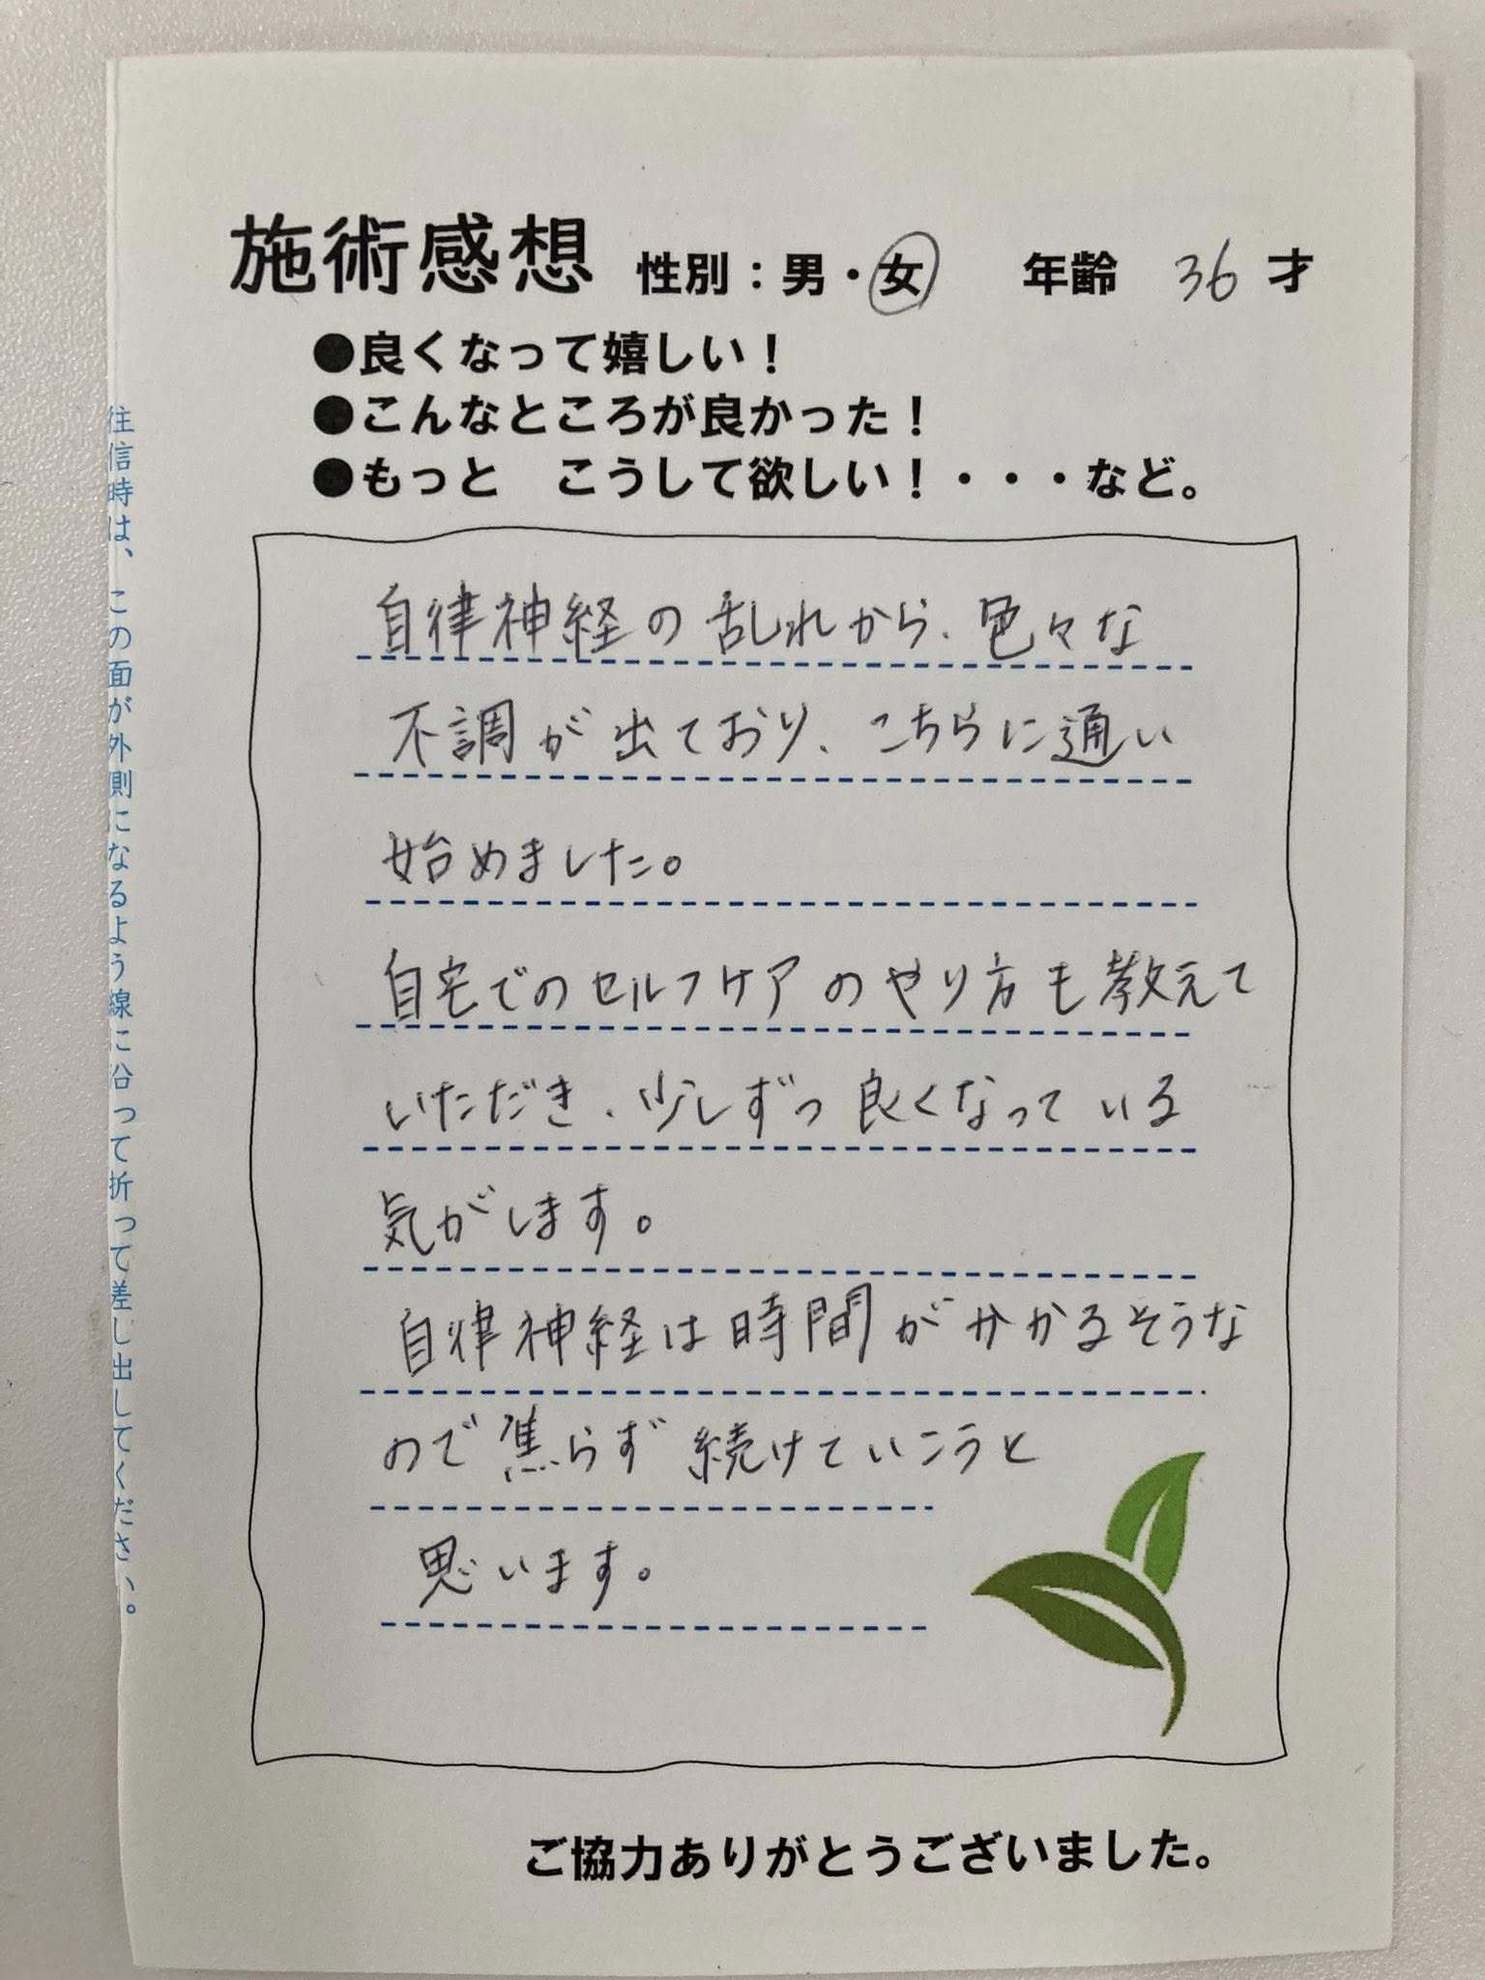 施術感想 性別：男・女 年齢 36 才
●良くなって嬉しい！
●こんなところが良かった！
●もっと　こうして欲しい！・・・など。
自律神経の乱れから、色々な
不調が出ており、こちらに通い
始めました。
自宅でのセルフケアのやり方も教えて
いただき、少しずつ良くなっている
気がします。
自律神経は時間がかかるそうな
ので焦らず続けていこうと
思います。
ご協力ありがとうございました。
住信時は、この面が外側になるよう線に沿って折って差し出してください。